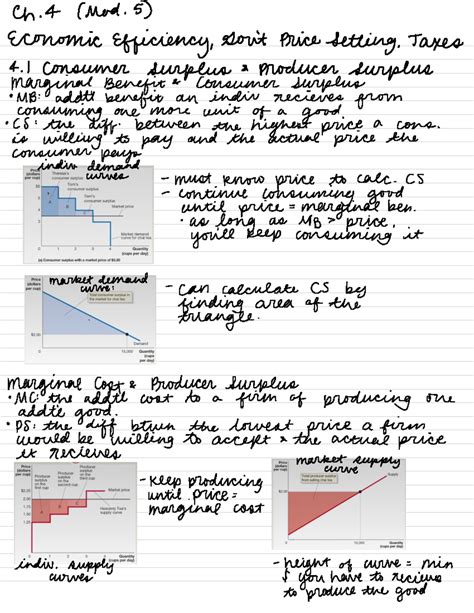 Ch. 4 (Mod. 5)
Economic Efficiency, Gov't Price Setting, Taxes
4.1 Consumer Surplus & Producer Surplus
Marginal Benefit & Consumer Surplus
• MB: addtl benefit an indiv recieves from
consuming one more unit of a good
• CS: the diff. between the highest price a cons.
is willing to pay and the actual price the
consumer pays
indiv demand
curves
Price
(dollars
per cup)
Theresa's
consumer surplus
Tom's
consumer surplus
Terri's
consumer surplus
Market price
Market demand
curve for chai tea
0 1 2 3 4
Quantity
(cups per day)
(a) Consumer surplus with a market price of $3.50
- must know price to calc. CS
- continue consuming good
until price = marginal ben.
• as long as MB > price,
you'll keep consuming it
Price
(dollars
per cup)
market demand
curve:
Total consumer surplus in
the market for chai tea
$2.00
Demand
0
Quantity
(cups per
day)
- can calculate CS by
finding area of the
triangle.
Marginal Cost & Producer Surplus
• MC: the addtl cost to a firm of producing one
addtl good.
• PS: the diff btwn the lowest price a firm
would be willing to accept & the actual price
it recieves
Price
(dollars
per cup)
Producer
surplus
on the
first cup
Producer
surplus
on the
second cup
Producer
surplus
on the
third cup
Market price
Heavenly Tea's
supply curve
0 1 2 3 4
Quantity
(cups per day)
indiv. supply
curves
- keep producing
until price =
marginal cost
market supply
curve
Price
(dollars
per cup)
Total producer surplus
from selling chai tea
Supply
$2.00
0
Quantity
(cups per day)
- height of curve = min
$ you have to recieve
to produce the good